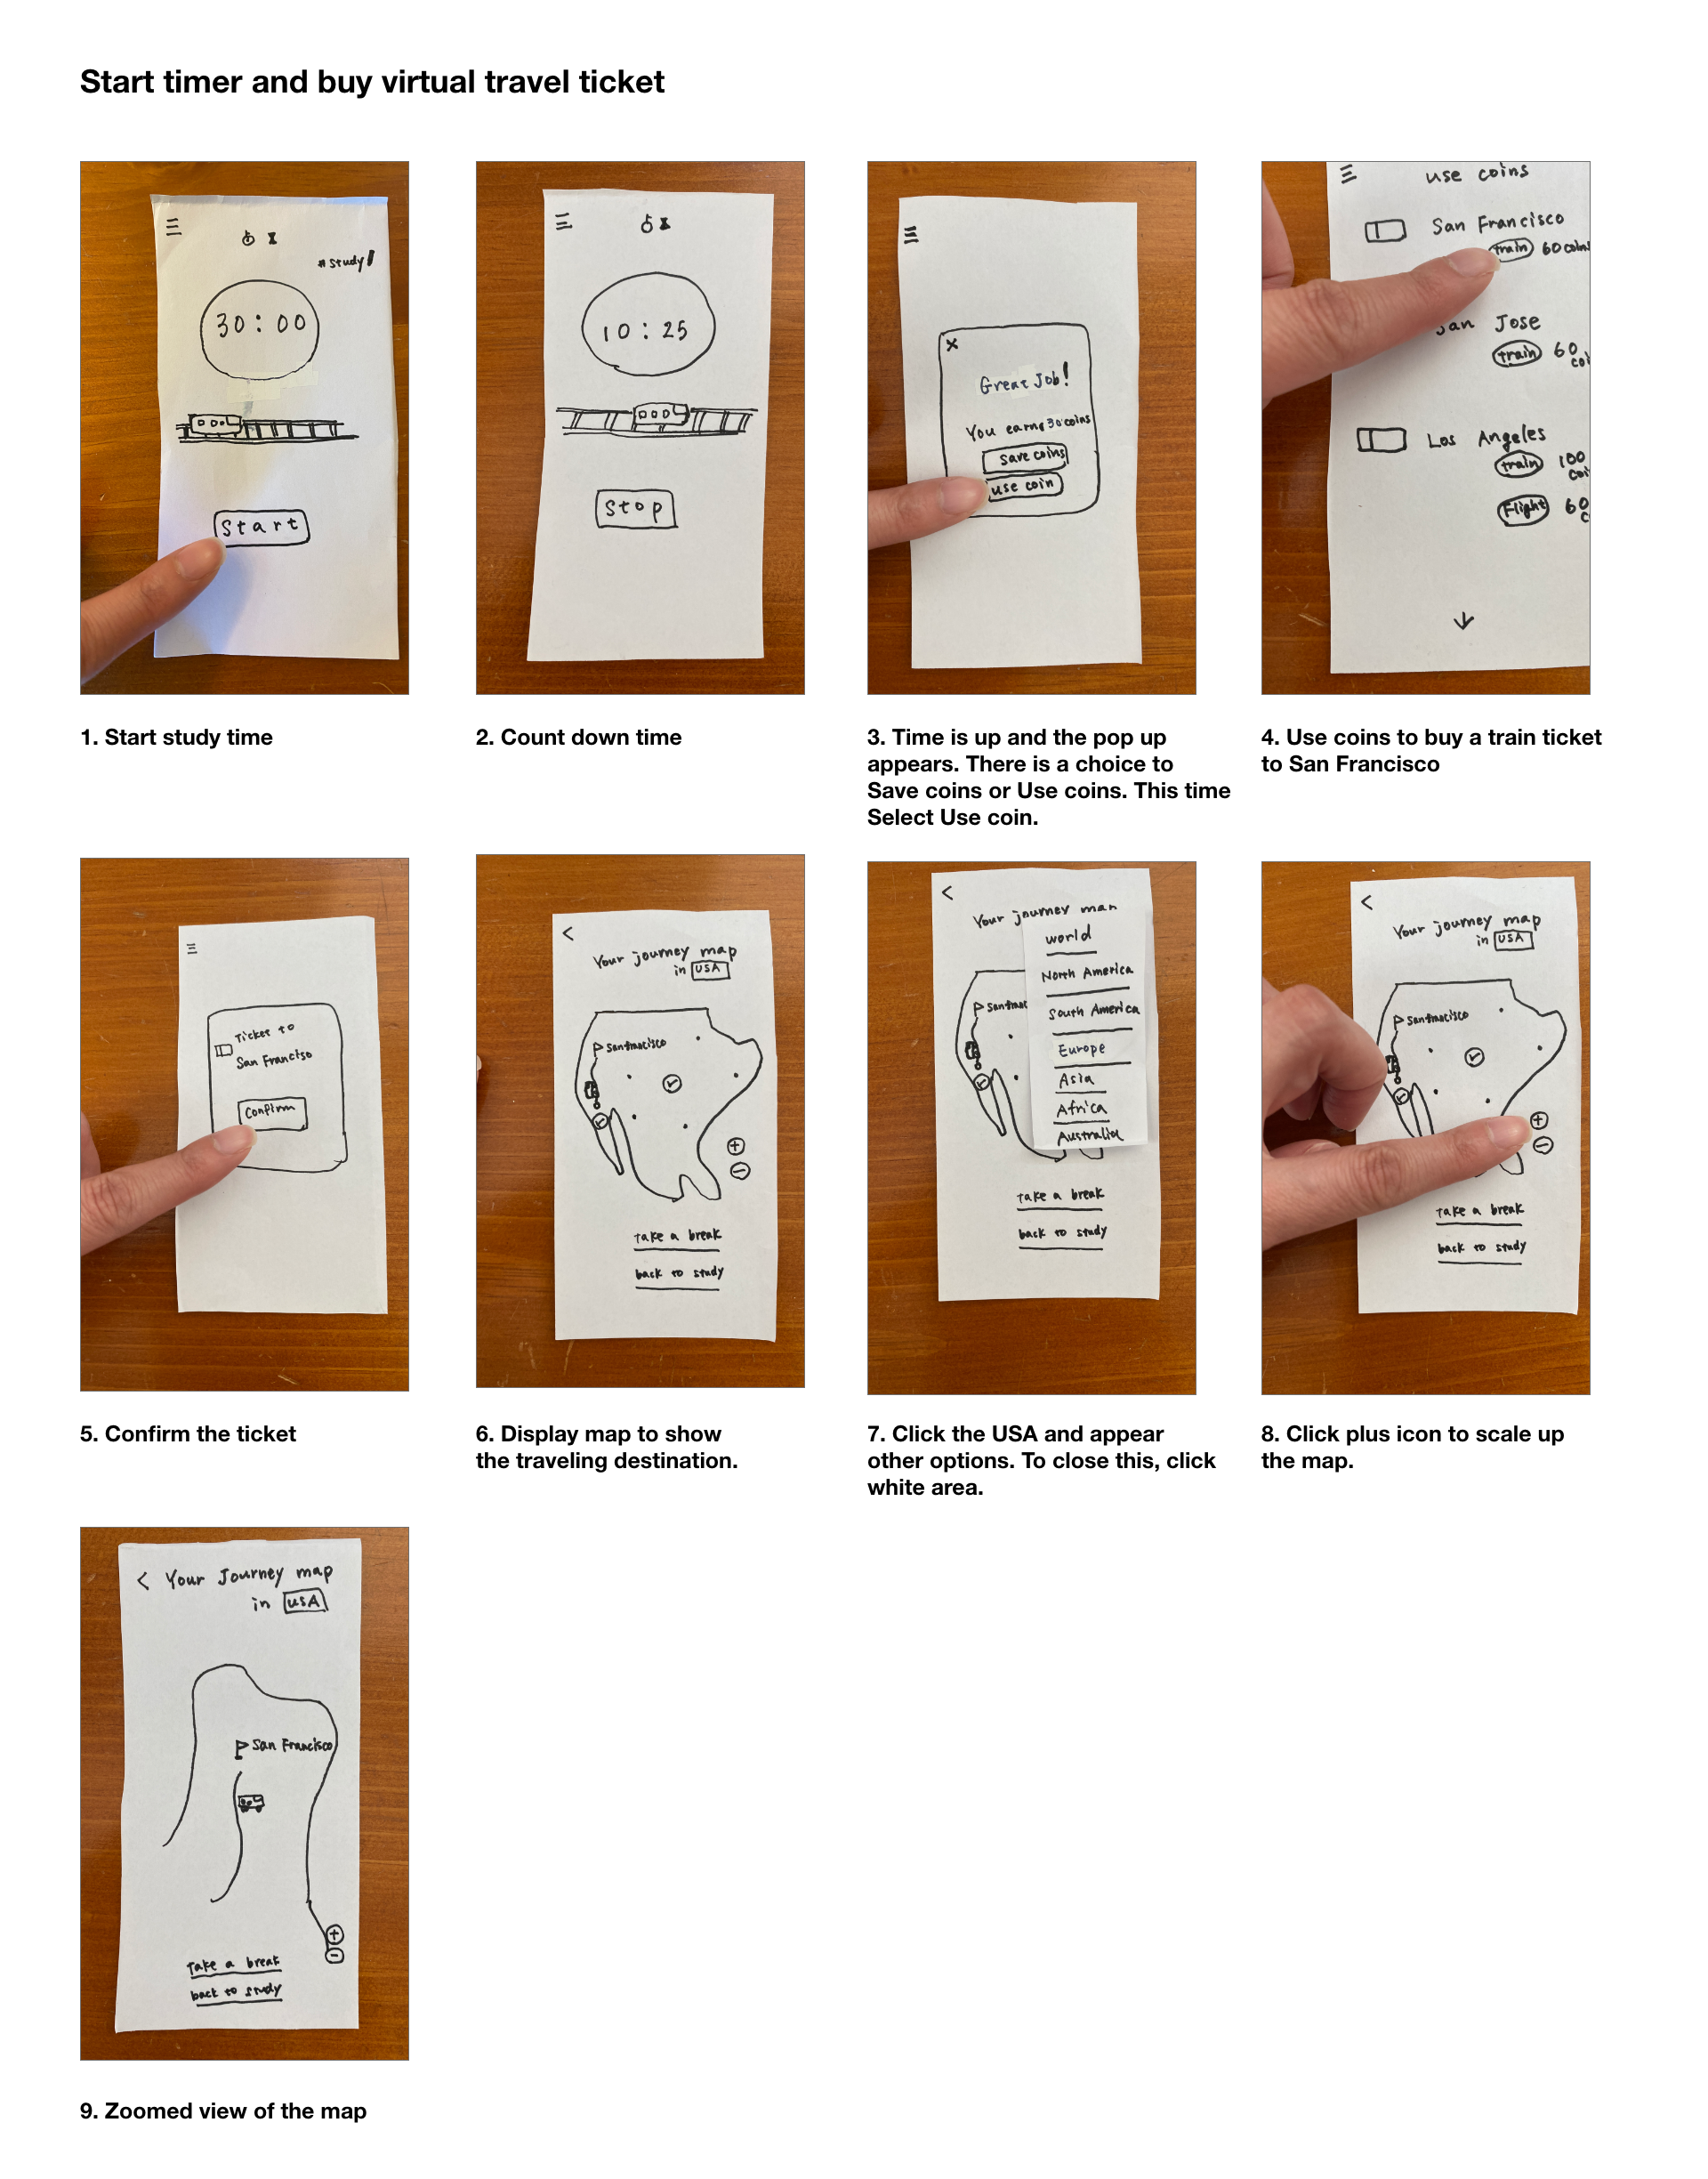 Start timer and buy virtual travel ticket
#study
30:00
Start
1. Start study time
10:25
Stop
2. Count down time
Great Job!
You earne 30 coins
Save coins
use coin
3. Time is up and the pop up
appears. There is a choice to
Save coins or Use coins. This time
Select Use coin.
use coins
San Francisco
train 60 coins
San Jose
train 60
coi
Los Angeles
train 100
coi
Flight 60
c
4. Use coins to buy a train ticket
to San Francisco
Ticket to
San Francisco
Confirm
5. Confirm the ticket
Your journey map
in USA
San francisco
take a break
back to study
6. Display map to show
the traveling destination.
Your journey map
world
North America
San franc
South America
Europe
Asia
Africa
Australia
take a break
back to study
7. Click the USA and appear
other options. To close this, click
white area.
Your journey map
in USA
San francisco
take a break
back to study
8. Click plus icon to scale up
the map.
Your Journey map
in USA
San Francisco
Take a break
back to study
9. Zoomed view of the map